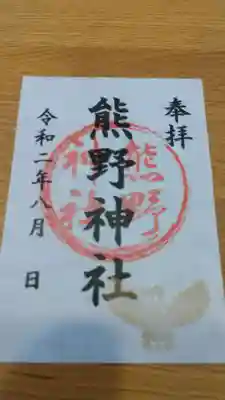 奉拝
熊野神社
熊野
神社
令和二年八月 日